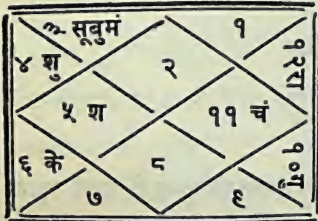 ३ सूबुमं
१
४ शु
२
१२रा
५ श
११ चं
६ के
८
१०गु
७
९